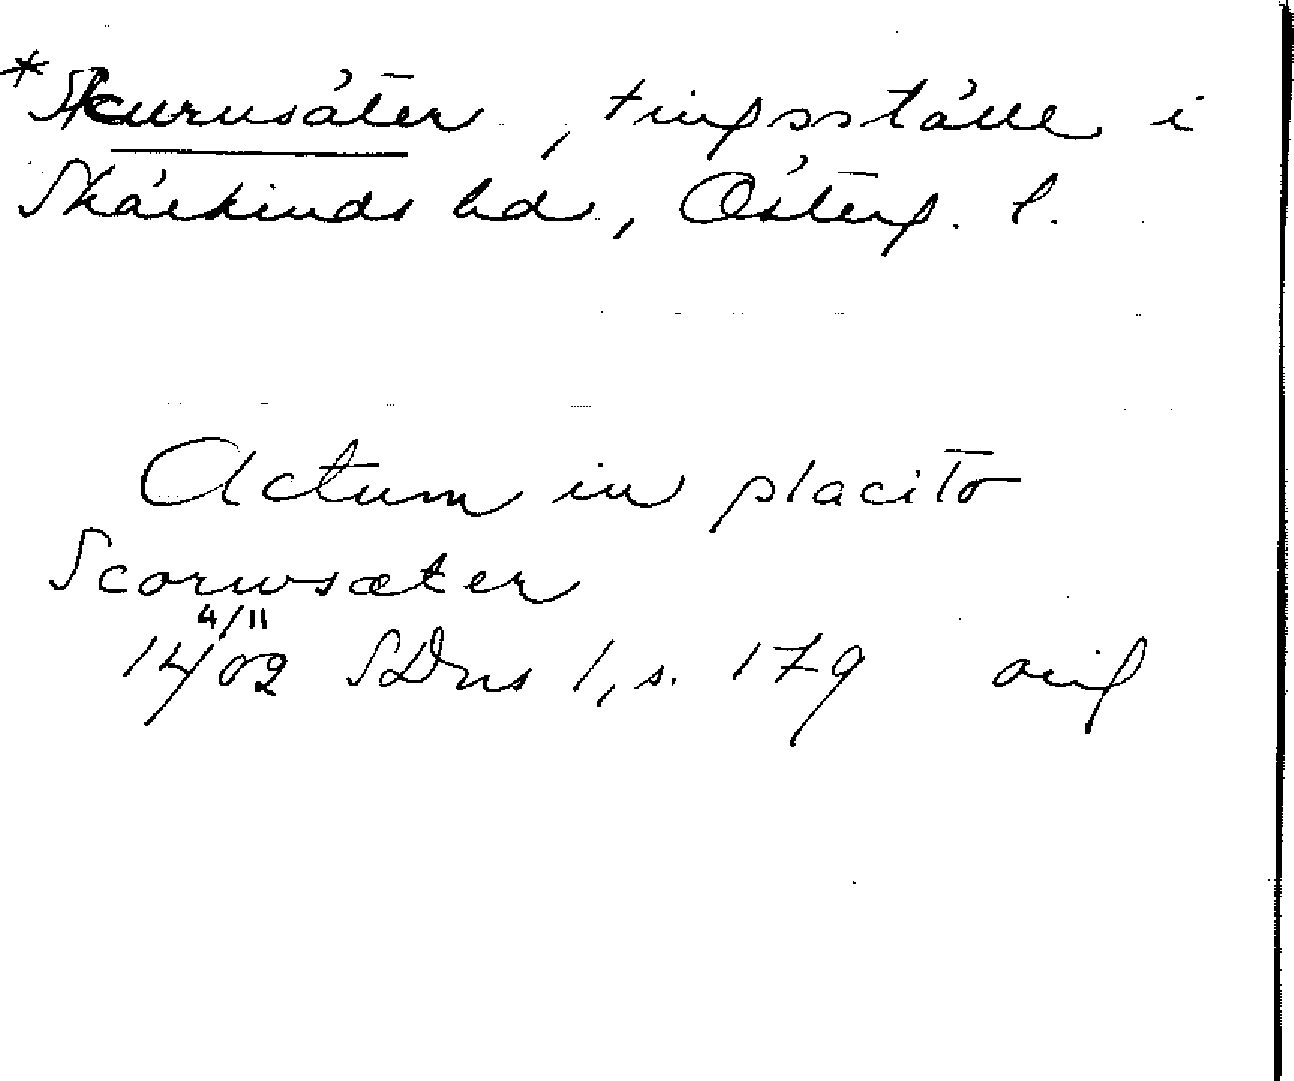 *Skurusäter, tingsställe i
Skärkinds hd, Österg. l.
Actum in placito
Scoruwsæter
4/11
1402 SDns 1, s. 179 orig